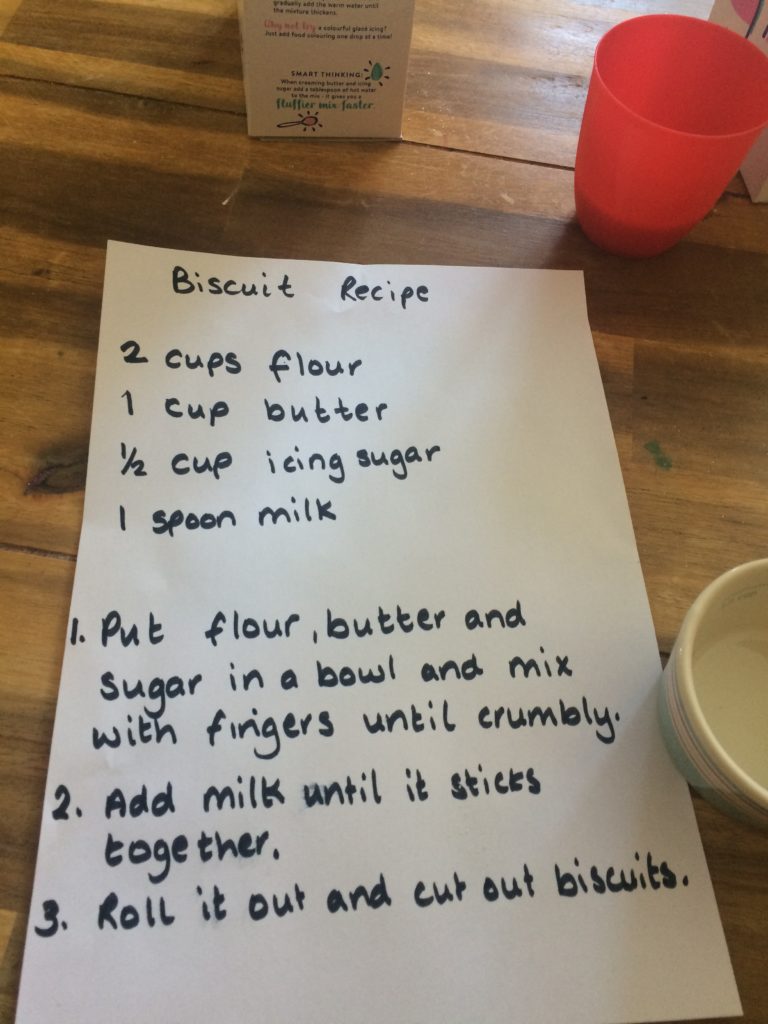 gradually add the warm water until
the mixture thickens.
Why not try a colourful glacé icing?
Just add food colouring one drop at a time!
SMART THINKING:
When creaming butter and icing
sugar add a tablespoon of hot water
to the mix - it gives you a
fluffier mix faster.
Biscuit Recipe
2 cups flour
1 cup butter
½ cup icing sugar
1 spoon milk
1. Put flour, butter and
sugar in a bowl and mix
with fingers until crumbly.
2. Add milk until it sticks
together.
3. Roll it out and cut out biscuits.